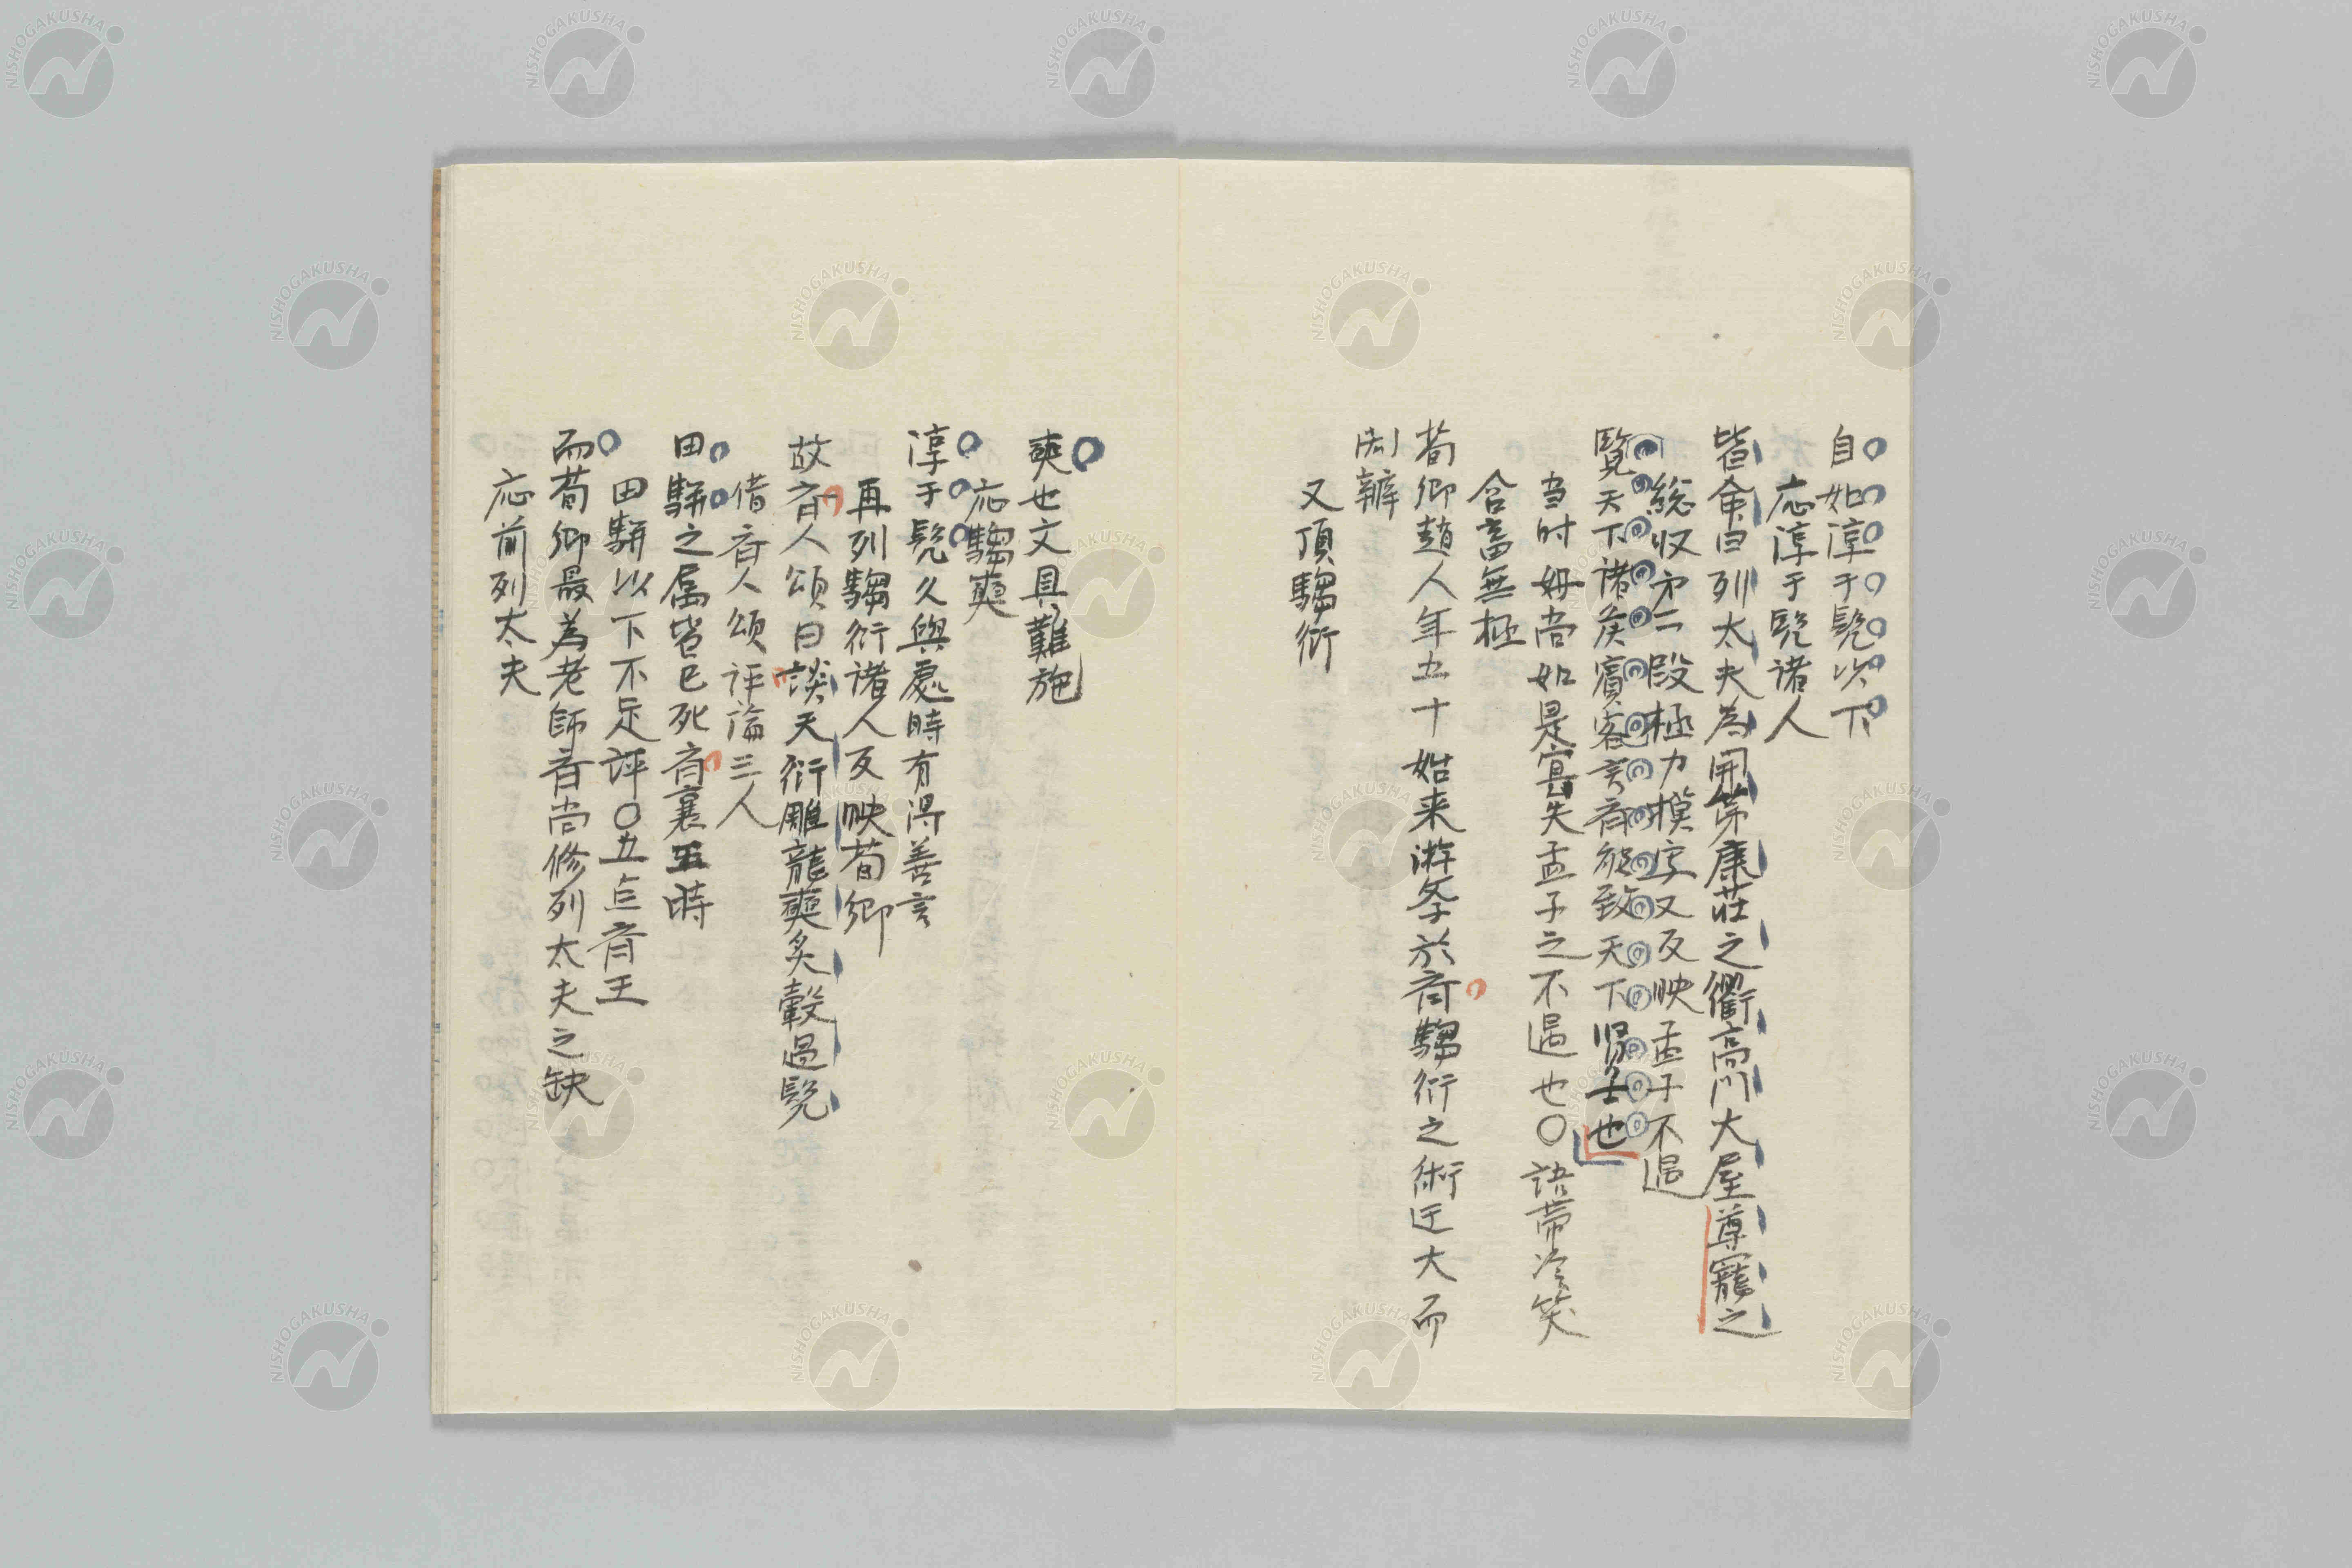 自如淳于髡以下
応淳于髡諸人
皆命曰列大夫為開第康荘之衢高門大屋尊寵之
総収㐧二段極力摸写又反映孟子不遇
覧天下諸侯賓客言斉能致天下賢士也
当时毋尚如是寔失孟子之不遇也〇語帯冷笑
含畜無極
荀卿趙人年五十始来游学於斉騶衍之術迂大而
閎辯
又頂騶衍
奭也文具難施
応騶奭
淳于髡久與處時有得善言
再列騶衍諸人反映荀卿
故斉人頌曰談天衍雕龍奭炙轂過髡
借斉人頌評論三人
田騈之属皆已死斉襄王時
田騈以下不足評〇五点斉王
而荀卿最為老師斉尚修列大夫之缺
応前列大夫
NISHOGAKUSHA